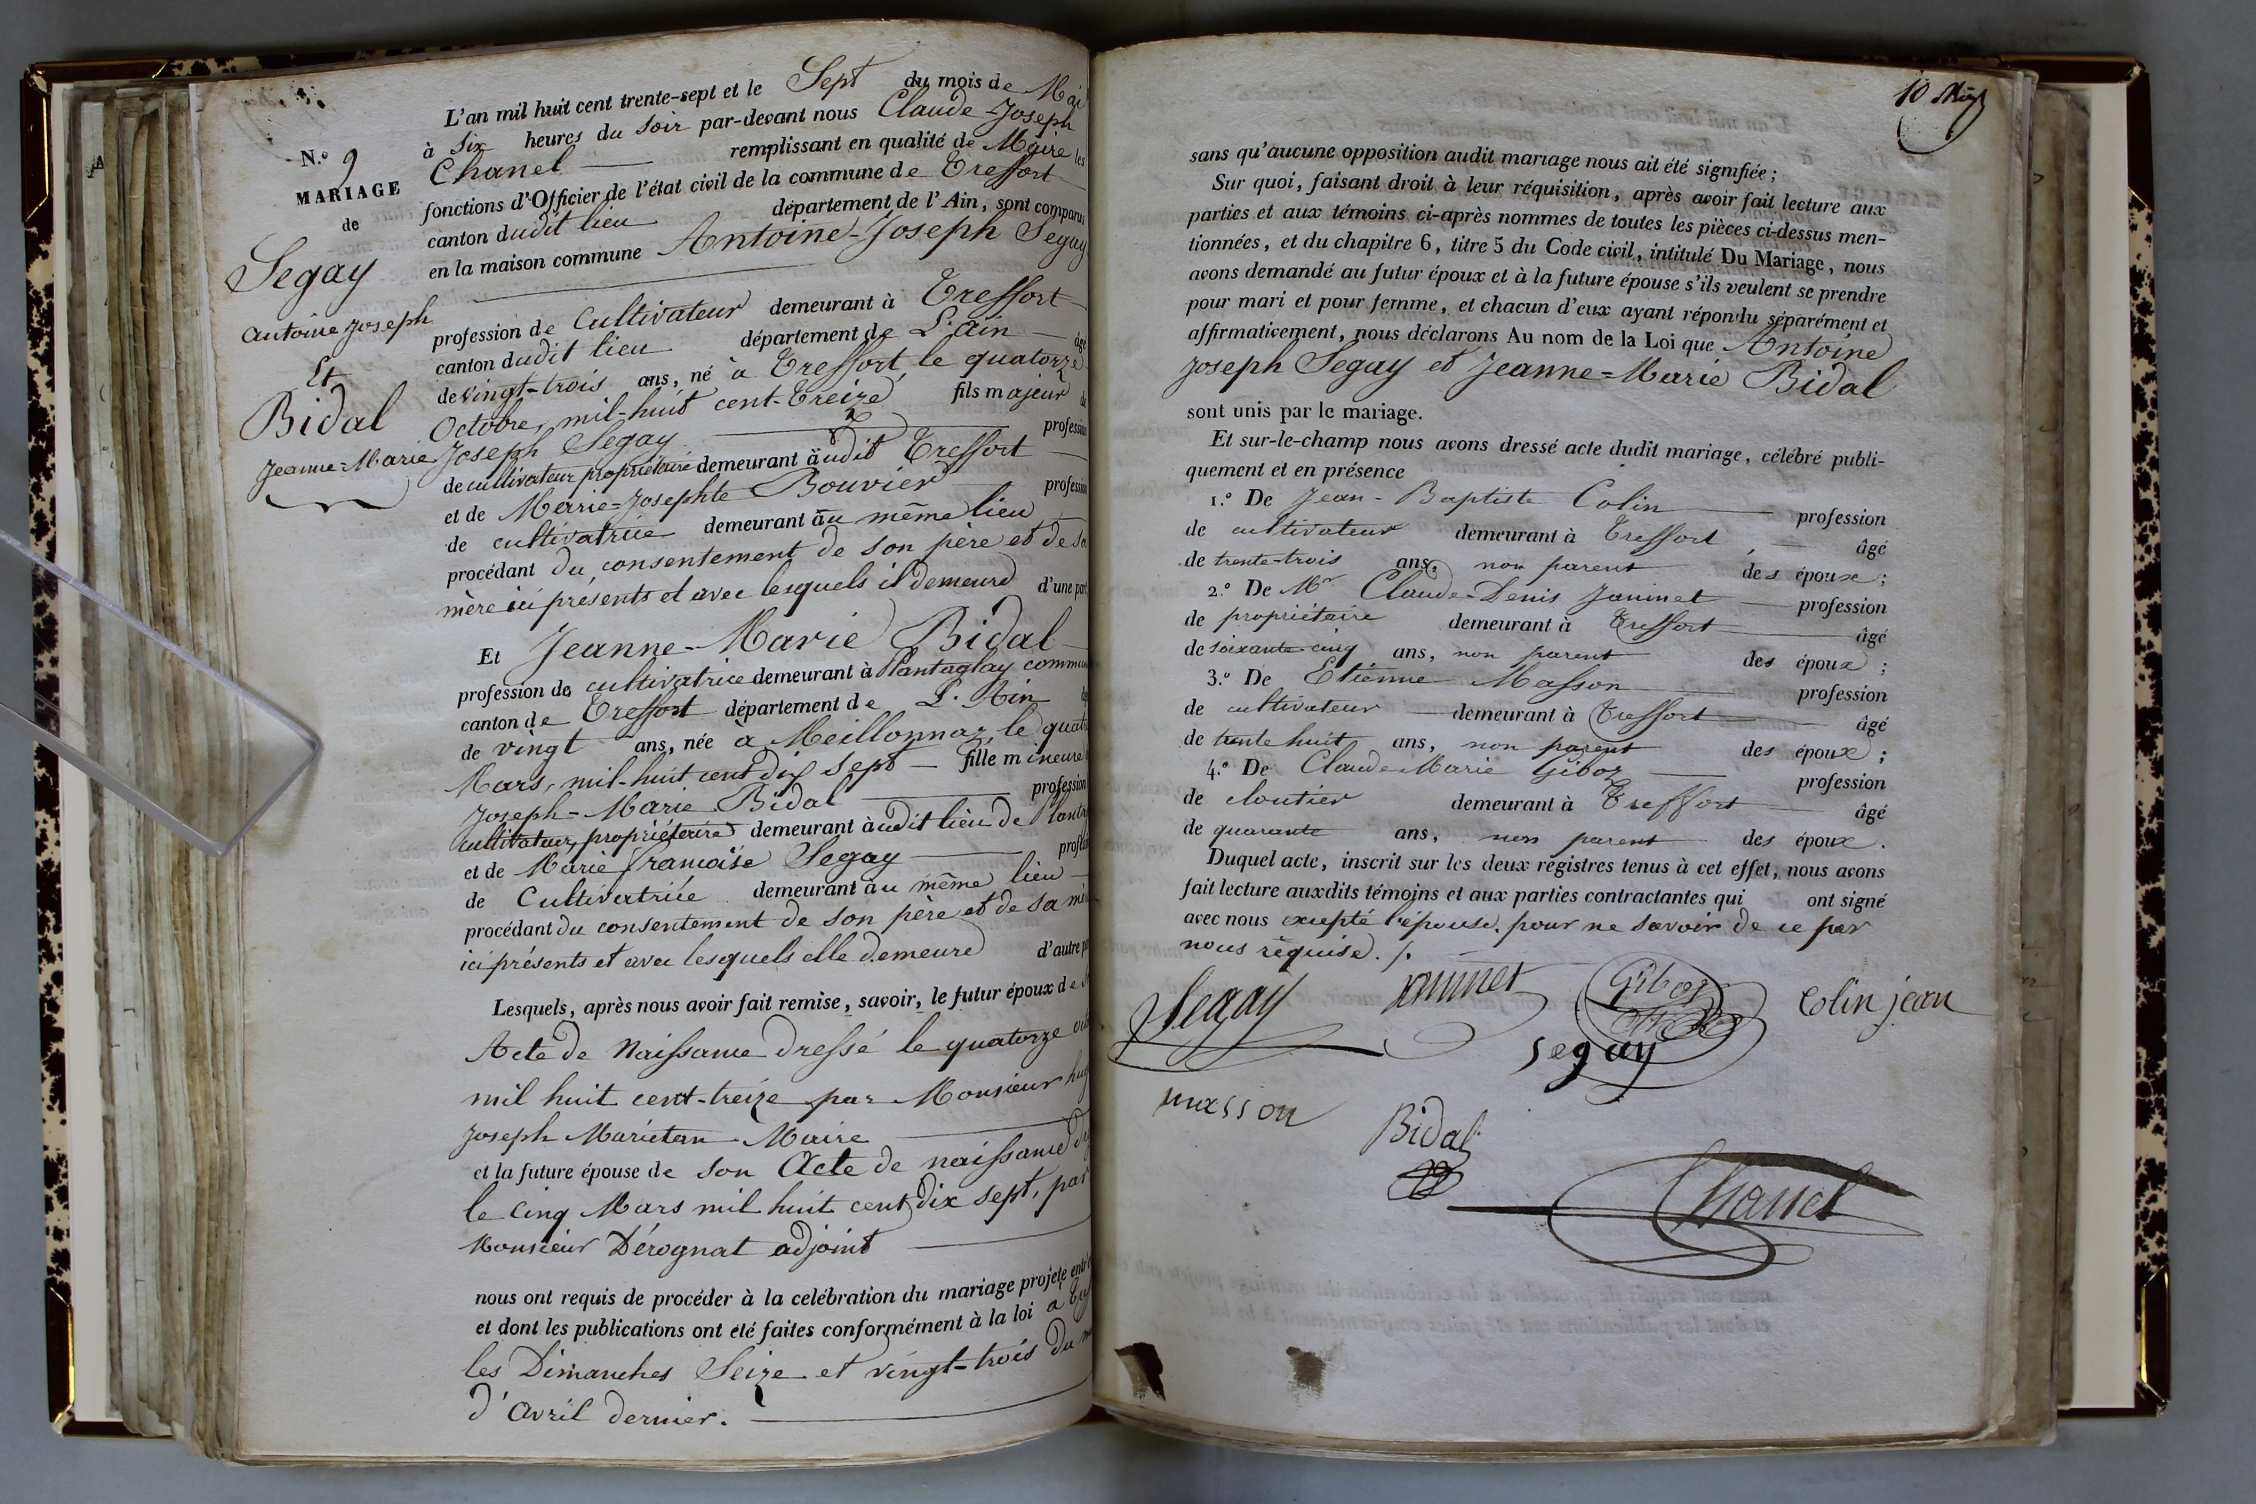 N.º 9
MARIAGE
de
Segay
Antoine Joseph
Et
Bidal
Jeanne=Marie
L'an mil huit cent trente-sept et le Sept du mois de Mai
à Six heures du Soir par-devant nous Claude-Joseph
Chanel remplissant en qualité de Maire les
fonctions d'Officier de l'état civil de la commune de Treffort
canton dudit lieu département de l'Ain, sont comparus
en la maison commune Antoine-Joseph Segay
profession de Cultivateur demeurant à Treffort
canton dudit lieu département de L'Ain âgé
de vingt-trois ans, né à Treffort, le quatorze
Octobre, mil-huit cent-treize fils majeur de
Joseph Segay profession
de cultivateur propriétaire demeurant audit Treffort
et de Marie=Josephte Bouvier profession
de cultivatrice demeurant au même lieu
procédant du consentement de son père et de sa
mère ici présents et avec lesquels il demeure d'une part
Et Jeanne-Marie Bidal
profession de cultivatrice demeurant à Plantaglay commune
canton de Treffort département de L'Ain
de vingt ans, née à Meillonnaz, le quatre
Mars, mil-huit cent dix sept fille mineure
Joseph-Marie Bidal profession
cultivateur, propriétaire demeurant audit lieu de Planta
et de Marie françoise Segay profession
de Cultivatrice demeurant au même lieu
procédant du consentement de son père et de sa mère
ici présents et avec lesquels elle demeure d'autre part
Lesquels, après nous avoir fait remise, savoir, le futur époux de
Acte de Naissance dressé le quatorze
mil huit cent-treize par Monsieur
Joseph Marietan Maire
et la future épouse de son Acte de naissance
le cinq Mars mil huit cent dix sept, par
Monsieur Dérognat adjoint
nous ont requis de procéder à la celébration du mariage projeté entre
et dont les publications ont été faites conformément à la loi à
les Dimanches Seize et vingt-trois du
d'Avril dernier.
10 Mai
sans qu'aucune opposition audit mariage nous ait été signifiée;
Sur quoi, faisant droit à leur réquisition, après avoir fait lecture aux
parties et aux témoins ci-après nommes de toutes les pièces ci-dessus men-
tionnées, et du chapitre 6, titre 5 du Code civil, intitulé Du Mariage, nous
avons demandé au futur époux et à la future épouse s'ils veulent se prendre
pour mari et pour femme, et chacun d'eux ayant répondu séparément et
affirmativement, nous déclarons Au nom de la Loi que Antoine
Joseph Segay et Jeanne=Marie Bidal
sont unis par le mariage.
Et sur-le-champ nous avons dressé acte dudit mariage, célébré publi-
quement et en présence
1.º De Jean-Baptiste Colin profession
de cultivateur demeurant à Treffort âgé
de trente-trois ans, non parent des époux;
2.º De Mr Claude-Denis Janinet profession
de propriétaire demeurant à Treffort âgé
de soixante-cinq ans, non parent des époux;
3.º De Etienne Masson profession
de cultivateur demeurant à Treffort âgé
de trente huit ans, non parent des époux;
4.º De Claude-Marie Giboz profession
de cloutier demeurant à Treffort âgé
de quarante ans, non parent des époux.
Duquel acte, inscrit sur les deux régistres tenus à cet effet, nous avons
fait lecture auxdits témoins et aux parties contractantes qui ont signé
avec nous excepté l'épouse, pour ne savoir de ce par
nous requise. /.
Segay Janinet Giboz Colin jean
segay
masson Bidal
Chanel